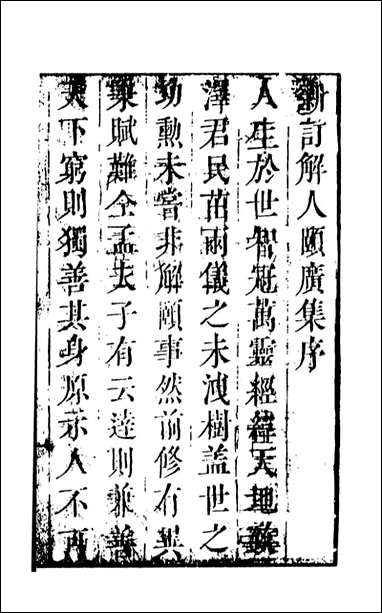 新訂解人頤廣集序
人生於世智冠萬靈經緯天地
澤君民苗兩儀之未洩樹蓋世之
功勳未嘗非解頤事然前修有異
稟賦難全孟夫子有云達則兼善
天下窮則獨善其身原示人不可